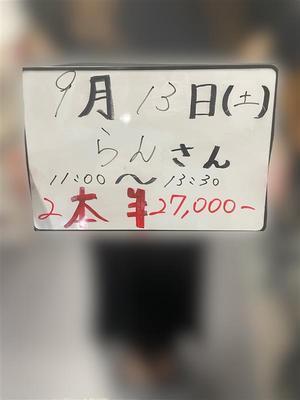 9月13日(土)
らんさん
11:00〜13:30
2本半27,000-